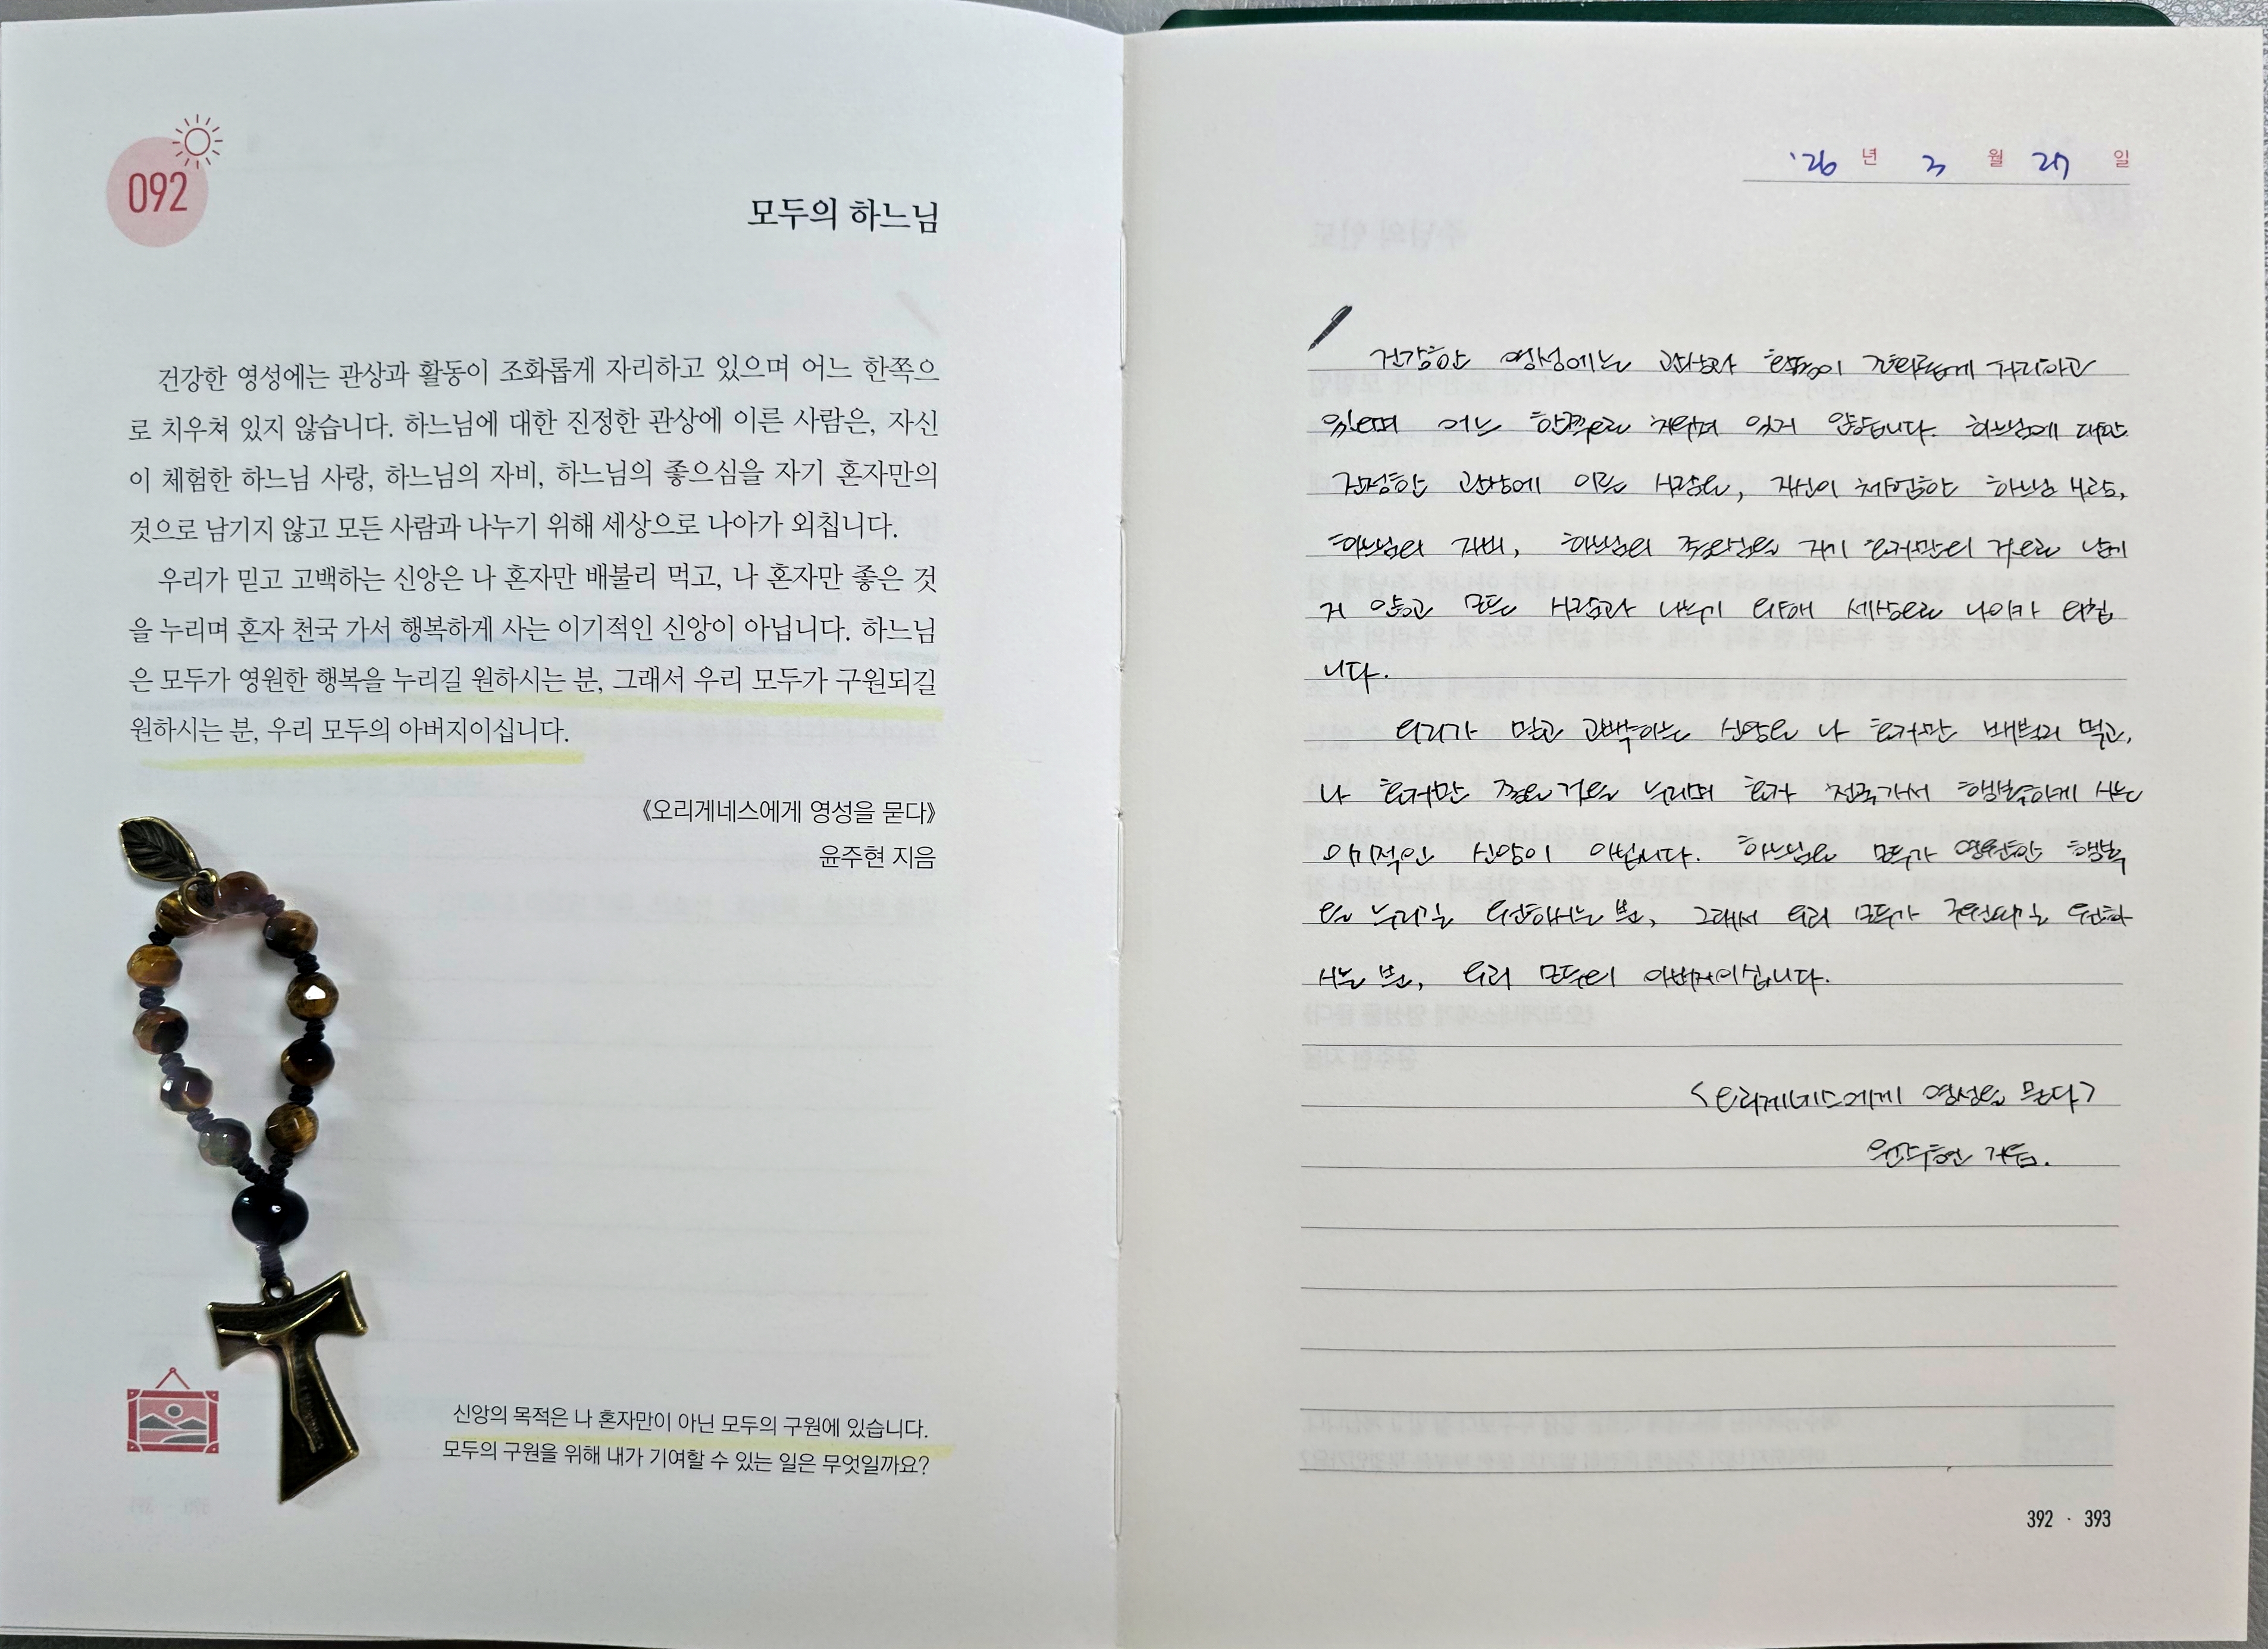 092
모두의 하느님
건강한 영성에는 관상과 활동이 조화롭게 자리하고 있으며 어느 한쪽으
로 치우쳐 있지 않습니다. 하느님에 대한 진정한 관상에 이른 사람은, 자신
이 체험한 하느님 사랑, 하느님의 자비, 하느님의 좋으심을 자기 혼자만의
것으로 남기지 않고 모든 사람과 나누기 위해 세상으로 나아가 외칩니다.
우리가 믿고 고백하는 신앙은 나 혼자만 배불리 먹고, 나 혼자만 좋은 것
을 누리며 혼자 천국 가서 행복하게 사는 이기적인 신앙이 아닙니다. 하느님
은 모두가 영원한 행복을 누리길 원하시는 분, 그래서 우리 모두가 구원되길
원하시는 분, 우리 모두의 아버지이십니다.
《오리게네스에게 영성을 묻다》
윤주현 지음
신앙의 목적은 나 혼자만이 아닌 모두의 구원에 있습니다.
모두의 구원을 위해 내가 기여할 수 있는 일은 무엇일까요?
'26 년 3 월 27 일
건강한 영성에는 관상과 활동이 조화롭게 자리하고
있으며 어느 한쪽으로 치우쳐 있지 않습니다. 하느님에 대한
진정한 관상에 이른 사람은, 자신이 체험한 하느님 사랑,
하느님의 자비, 하느님의 좋으심을 자기 혼자만의 것으로 남기
지 않고 모든 사람과 나누기 위해 세상으로 나아가 외칩
니다.
우리가 믿고 고백하는 신앙은 나 혼자만 배불리 먹고,
나 혼자만 좋은 것을 누리며 혼자 천국가서 행복하게 사는
이기적인 신앙이 아닙니다. 하느님은 모두가 영원한 행복
을 누리길 원하시는 분, 그래서 우리 모두가 구원되길 원하
시는 분, 우리 모두의 아버지이십니다.
<오리게네스에게 영성을 묻다>
윤주현 지음.
392 · 393